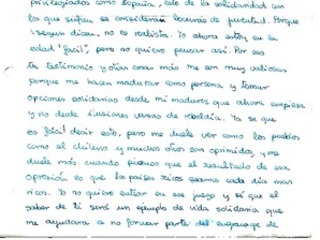 privilegiados como España, esto de la solidaridad con
los que sufren se consideran locuras de juventud. Porque
según dicen, no es realista. Yo ahora estoy en la
edad "fácil", pero no quiero pensar así. Por eso
tu testimonio y otras cosas más me son muy valiosas
porque me hacen madurar como persona y tomar
opciones solidarias desde mi madurez que ahora empieza
y no desde ilusiones vanas de rebeldía. Yo se que
es fácil decir esto, pero me duele ver como los pueblos
como el chileno y muchos otros son oprimidos, y me
duele más cuando pienso que el resultado de esa
opresión es que los países ricos seamos cada día mas
ricos. Yo no quiero entrar en ese juego y sé que el
saber de ti será un ejemplo de vida solidaria que
me ayudara a no formar parte del engranaje de